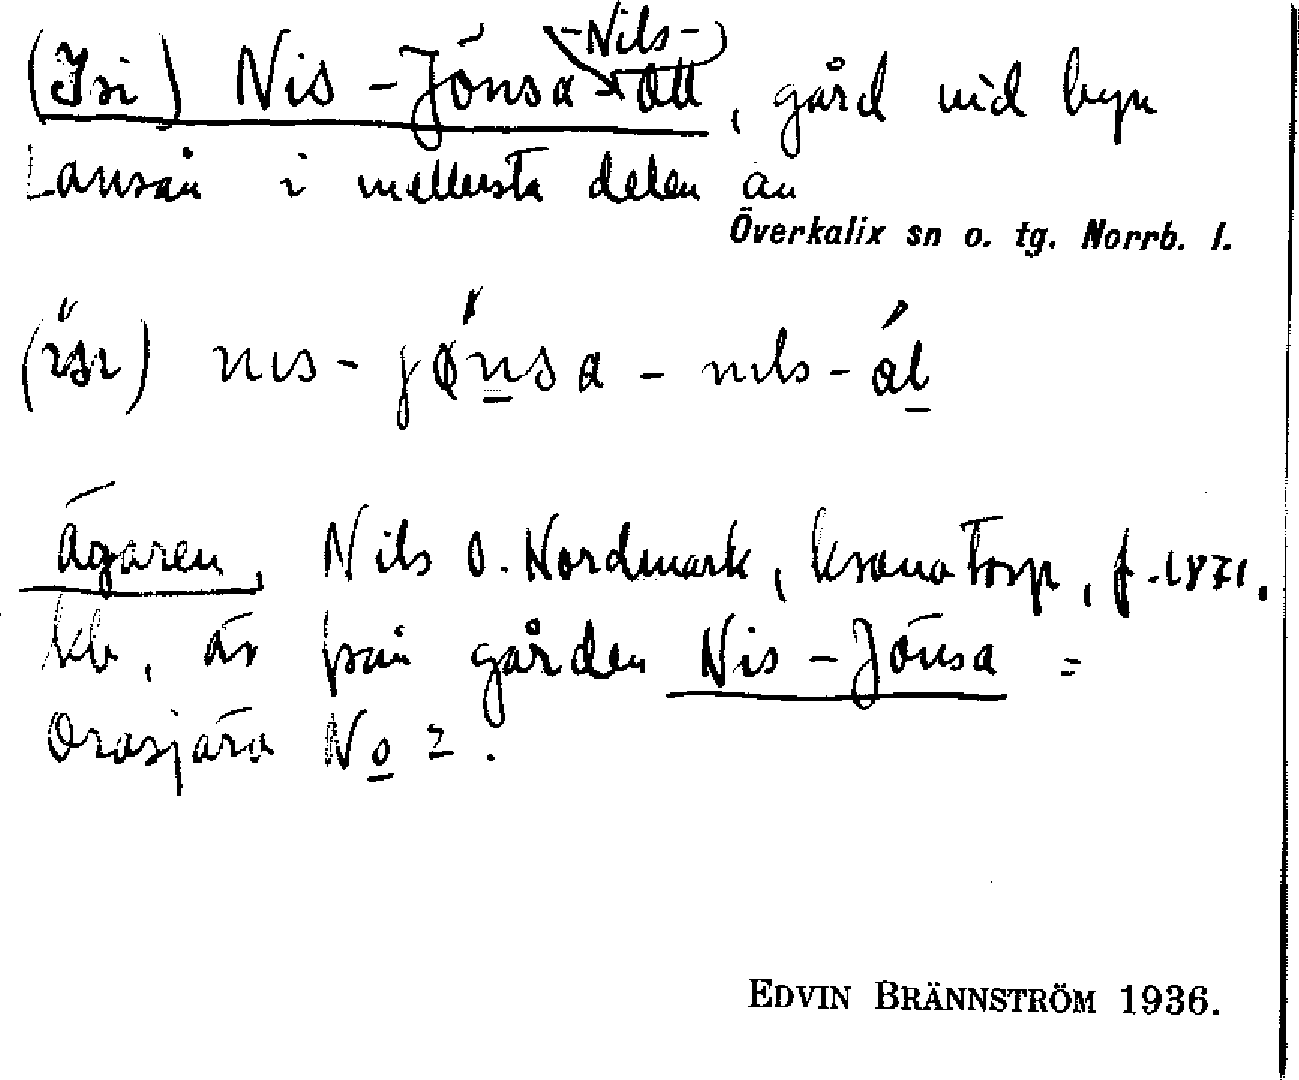 (Isi) Nis-Jönsa-Nils-ött, gård vid byn
Lansån i mellersta delen av
Överkalix sn o. tg. Norrb. l.
nɩs-jønsa-nɩls-
Ägaren, Nils O. Nordmark, kronotorp, f. 1871.
kb, är från gården Nis-Jönsa =
Orasjärv No 2.
EDVIN BRÄNNSTRÖM 1936.